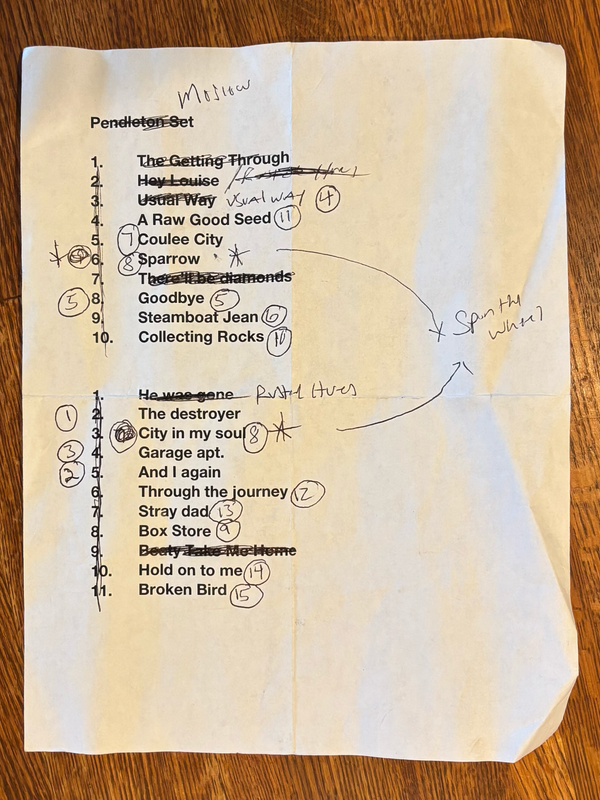 Moscow
Pendleton Set
1. The Getting Through
2. Hey Louise
3. Usual Way USUAL WAY 4
4. A Raw Good Seed 11
7 5. Coulee City
8 6. Sparrow *
7. There'll be diamonds
5 8. Goodbye 5
9. Steamboat Jean 6
10. Collecting Rocks 10
* Spin the wheel
1. He was gone
1 2. The destroyer
3. City in my soul 8 *
3 4. Garage apt.
2 5. And I again
6. Through the journey 12
7. Stray dad 13
8. Box Store 9
9. Beaty Take Me Home
10. Hold on to me 14
11. Broken Bird 15